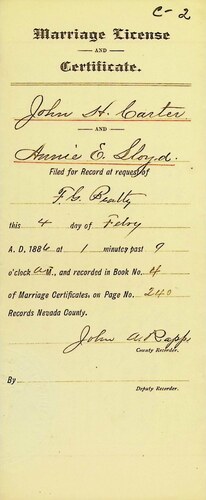 C-2
Marriage License
AND
Certificate.
John H. Carter
AND
Annie E. Lloyd.
Filed for Record at request of
F. G. Beatty
this 4 day of Febry
A. D. 1886 at 1 minutes past 9
o'clock A.M., and recorded in Book No. 4
of Marriage Certificates, on Page No. 240
Records Nevada County.
John A. Rapp
County Recorder.
By
Deputy Recorder.